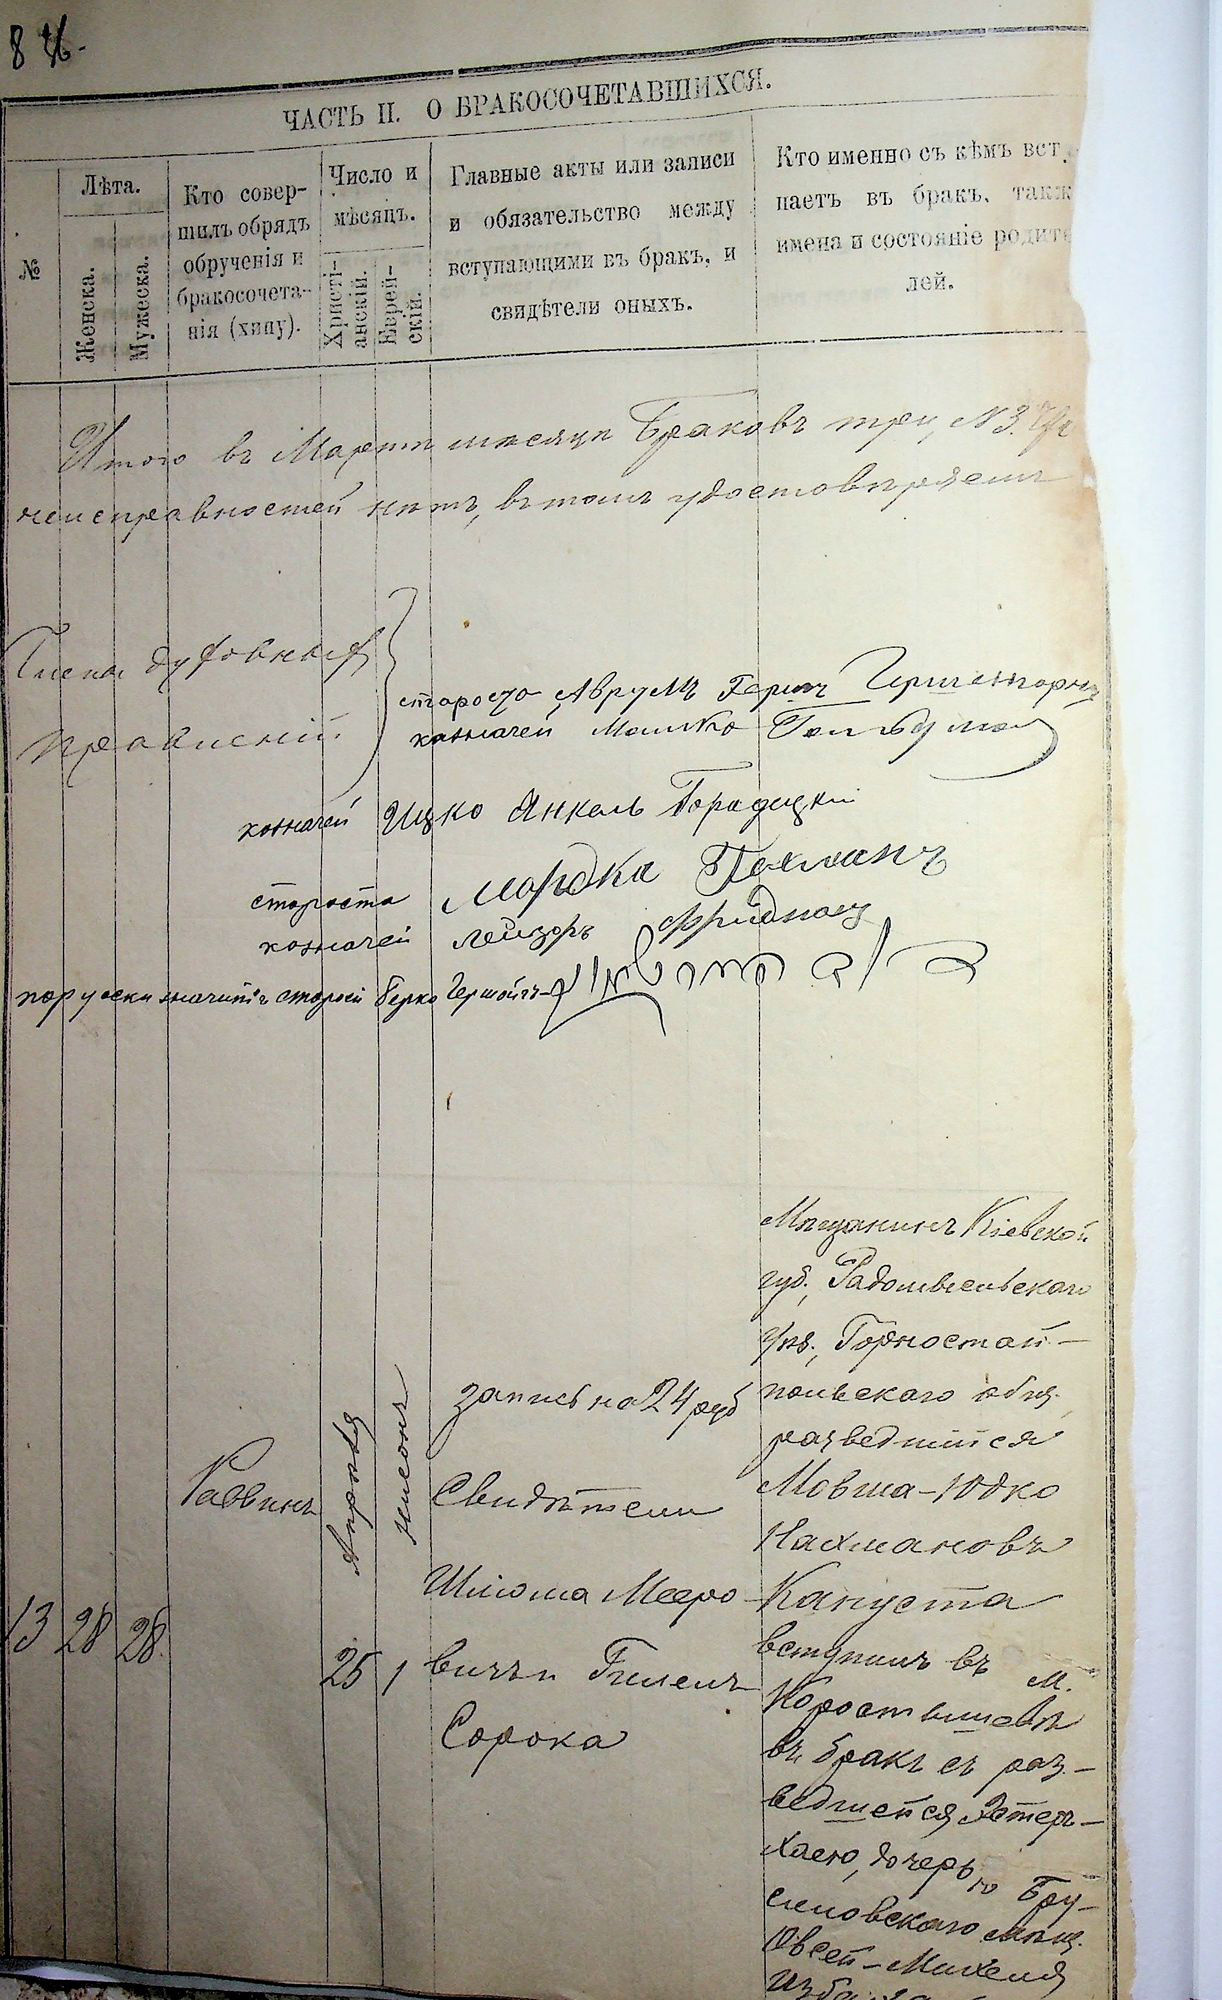 8
ЧАСТЬ II. О БРАКОСОЧЕТАВШИХСЯ.
№
Лѣта.
Женска.
Мужеска.
Кто совер-
шилъ обрядъ
обрученія и
бракосочета-
нія (хупу).
Число и
мѣсяцъ.
Христі-
анскій.
Еврей-
скій.
Главные акты или записи
и обязательство между
вступающими въ бракъ, и
свидѣтели оныхъ.
Кто именно съ кѣмъ всту
паетъ въ бракъ, такж
имена и состояніе родите
лей.
Итого въ Мартѣ мѣсяцѣ Браковъ три, №3.
неисправностей нѣтъ, въ томъ удостовѣряемъ
Члены духовныхъ
правленій
староста Аврумъ Гершъ
казначей Мошко
казначей Ицко Янкель Городецкій
староста Мордка
казначей Лейзоръ
по русски значитъ староста Берко
13
28
28
Раввинъ
Апрѣля
25
Нисонъ
1
запись на 24 руб
Свидѣтели
Шлиома Мееро-
вичъ и Гилелъ
Сорока
Мѣщанинъ Кіевской
губ., Радомысльскаго
уѣз., Горностай-
польскаго общ.
разведшійся
Мовша-Юдко
Нахмановъ
Капуста
вступилъ въ м.
Коростышевѣ
въ бракъ съ раз-
ведшейся Эстеръ-
Хаею, дочерью Бру-
силовскаго мѣщ.
Овсей-Михеля